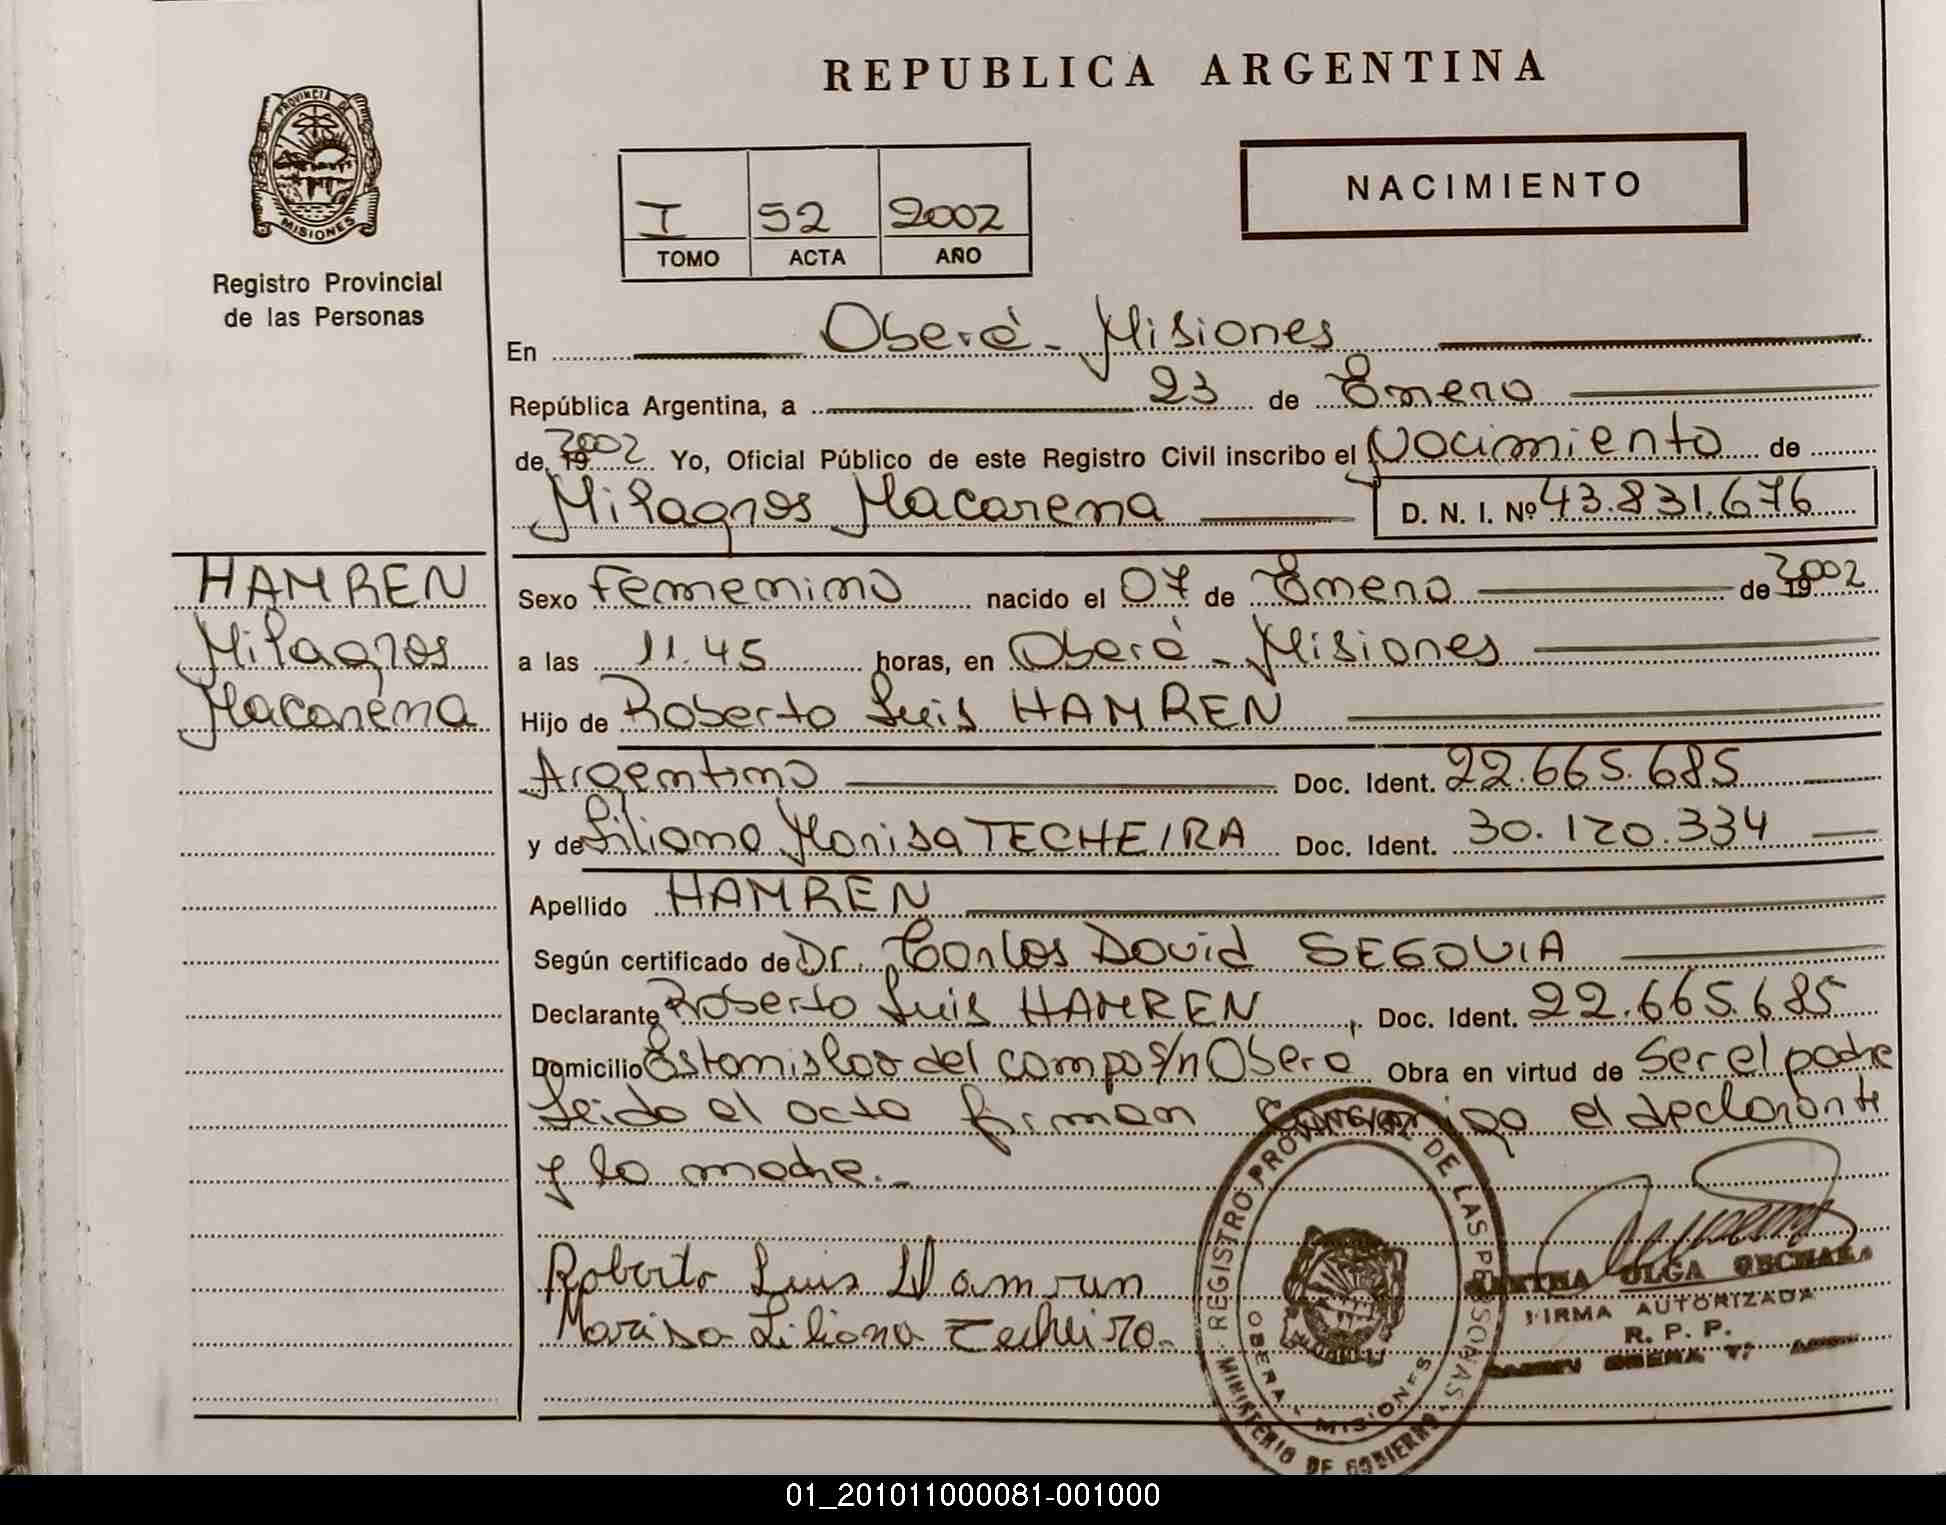 PROVINCIA DE
MISIONES
Registro Provincial
de las Personas
REPUBLICA ARGENTINA
I 52 2002
TOMO ACTA AÑO
NACIMIENTO
En Oberá - Misiones
República Argentina, a 23 de Enero
de 19 2002 Yo, Oficial Público de este Registro Civil inscribo el Nacimiento de
Milagros Macarena D. N. I. Nº 43.831.676
HAMREN
Milagros
Macarena
Sexo Femenino nacido el 07 de Enero de 19 2002
a las 11.45 horas, en Oberá - Misiones
Hijo de Roberto Luis HAMREN
Argentino Doc. Ident. 22.665.685
y de Liliana Marisa TECHEIRA Doc. Ident. 30.120.334
Apellido HAMREN
Según certificado de Dr. Carlos David SEGOVIA
Declarante Roberto Luis HAMREN, Doc. Ident. 22.665.685
Domicilio Estanislao del campo s/n Oberá Obra en virtud de Ser el padre
Leida el acta firman Conmigo el declarante
y la madre.-
Roberto Luis Hamren
Marisa Liliana Techeira.
REGISTRO PROVINCIAL DE LAS PERSONAS
OBERA - MISIONES
MINISTERIO DE GOBIERNO
OLGA
FIRMA AUTORIZADA
R. P. P.
01_201011000081-001000